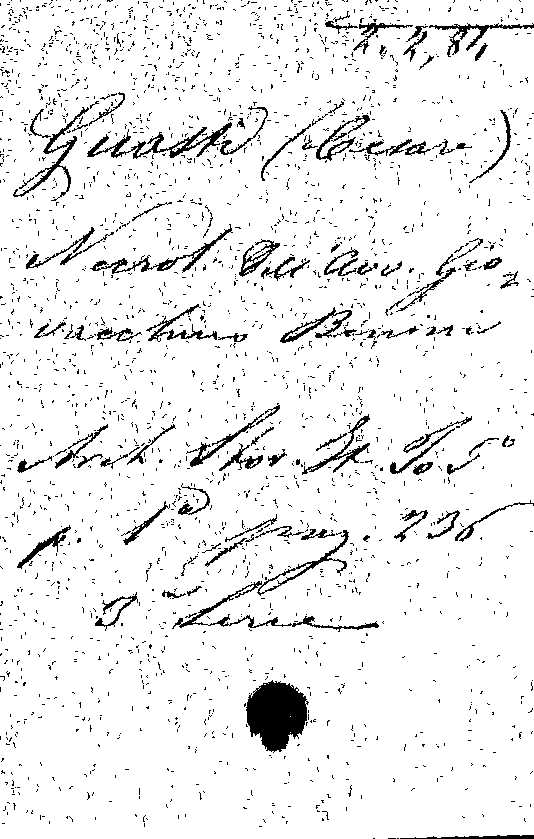 2. 2, 81,
Guasti (Cesare)
Necrol. Dell'Avv. Gio,
vacchino Benini
Arch. Stor. It. To 5º
p. 1ª pag. 236
3ª Serie